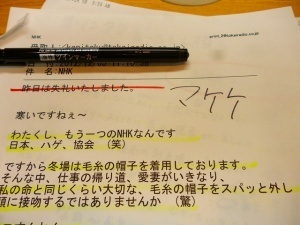 件 名 NHK
昨日は失礼いたしました。
マケケ
寒いですねぇ～
わたくし、もう一つのNHKなんです
日本、ハゲ、協会（笑）
ですから冬場は毛糸の帽子を着用しております。
そんな中、仕事の帰り道、愛妻がいきなり、
私の命と同じくらい大切な、毛糸の帽子をスパッと外し
頭に接吻するではありませんか（驚）